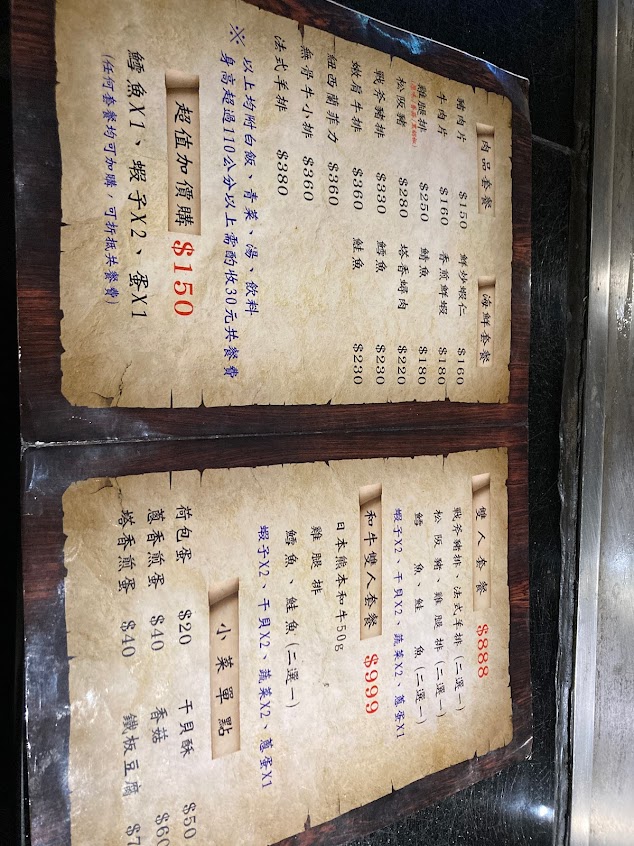 肉品套餐
豬肉片 $150
牛肉片 $160
雞腿排 $250
松阪豬 $280
戰斧豬排 $330
嫩肩牛排 $360
紐西蘭菲力 $360
無骨牛小排 $360
法式羊排 $380
海鮮套餐
鮮炒蝦仁 $160
香煎鮮蝦 $180
鯖魚 $180
塔香蟳肉 $220
鱈魚 $230
鮭魚 $230
※ 以上均附白飯、青菜、湯、飲料
身高超過110公分以上需酌收30元共餐費
超值加價購 $150
鱈魚X1、蝦子X2、蛋X1
(任何套餐均可加購，可折抵共餐費)
雙人套餐 $888
戰斧豬排、法式羊排(二選一)
松阪豬、雞腿排(二選一)
鱈魚、鮭魚(二選一)
蝦子X2、干貝X2、蔬菜X2、蔥蛋X1
和牛雙人套餐 $999
日本熊本和牛50g
雞腿排
鱈魚、鮭魚(二選一)
蝦子X2、干貝X2、蔬菜X2、蔥蛋X1
小菜單點
荷包蛋 $20 干貝酥 $50
蔥香煎蛋 $40 香菇 $60
塔香煎蛋 $40 鐵板豆腐 $7